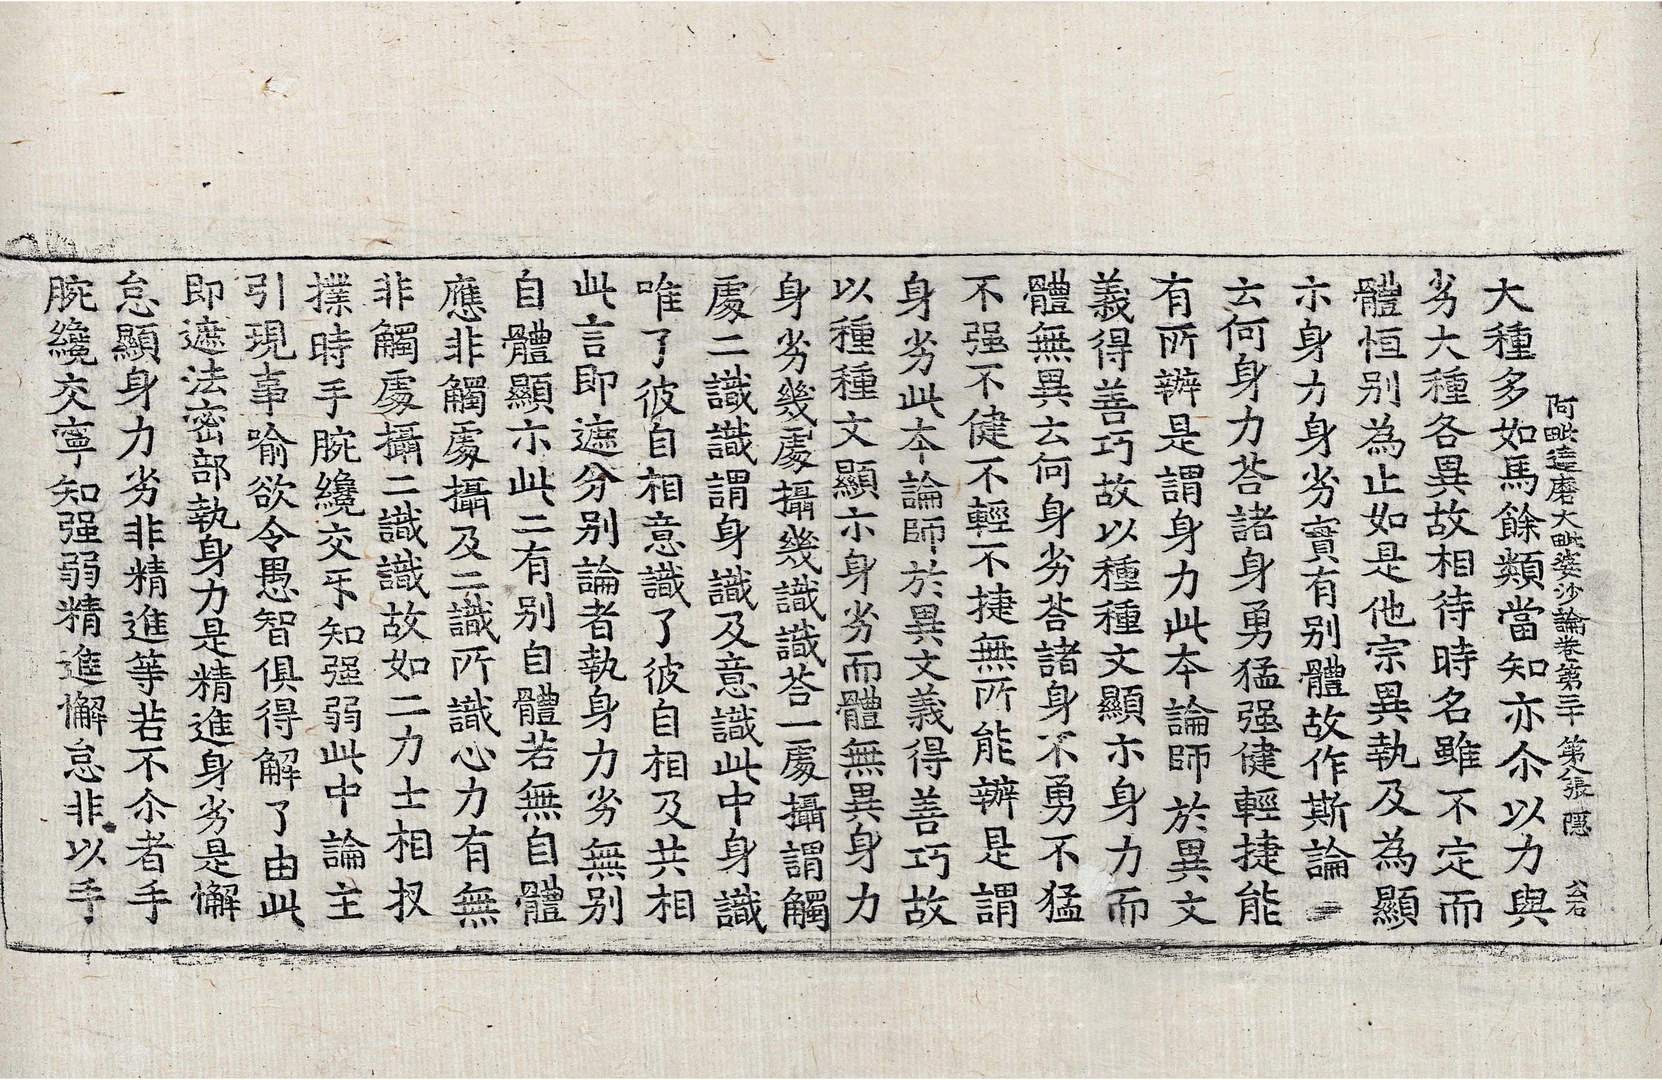 阿毗達磨大毗婆沙論卷第三十 第八張 隱 公石
大種多如馬餘類當知亦尒以力與
劣大種各異故相待時名雖不定而
體恒别為止如是他宗異執及為顯
示身力身劣實有别體故作斯論
云何身力荅諸身勇猛强健輕捷能
有所辦是謂身力此本論師於異文
義得善巧故以種種文顯示身力而
體無異云何身劣荅諸身不勇不猛
不强不健不輕不捷無所能辦是謂
身劣此本論師於異文義得善巧故
以種種文顯示身劣而體無異身力
身劣幾處攝幾識識荅一處攝謂觸
處二識識謂身識及意識此中身識
唯了彼自相意識了彼自相及共相
此言即遮分别論者執身力劣無别
自體顯示此二有别自體若無自體
應非觸處攝及二識所識心力有無
非觸處攝二識識故如二力士相扠
撲時手腕纔交㸦知强弱此中論主
引現事喻欲令愚智俱得解了由此
即遮法密部執身力是精進身劣是懈
怠顯身力劣非精進等若不尒者手
腕纔交寧知强弱精進懈怠非以手